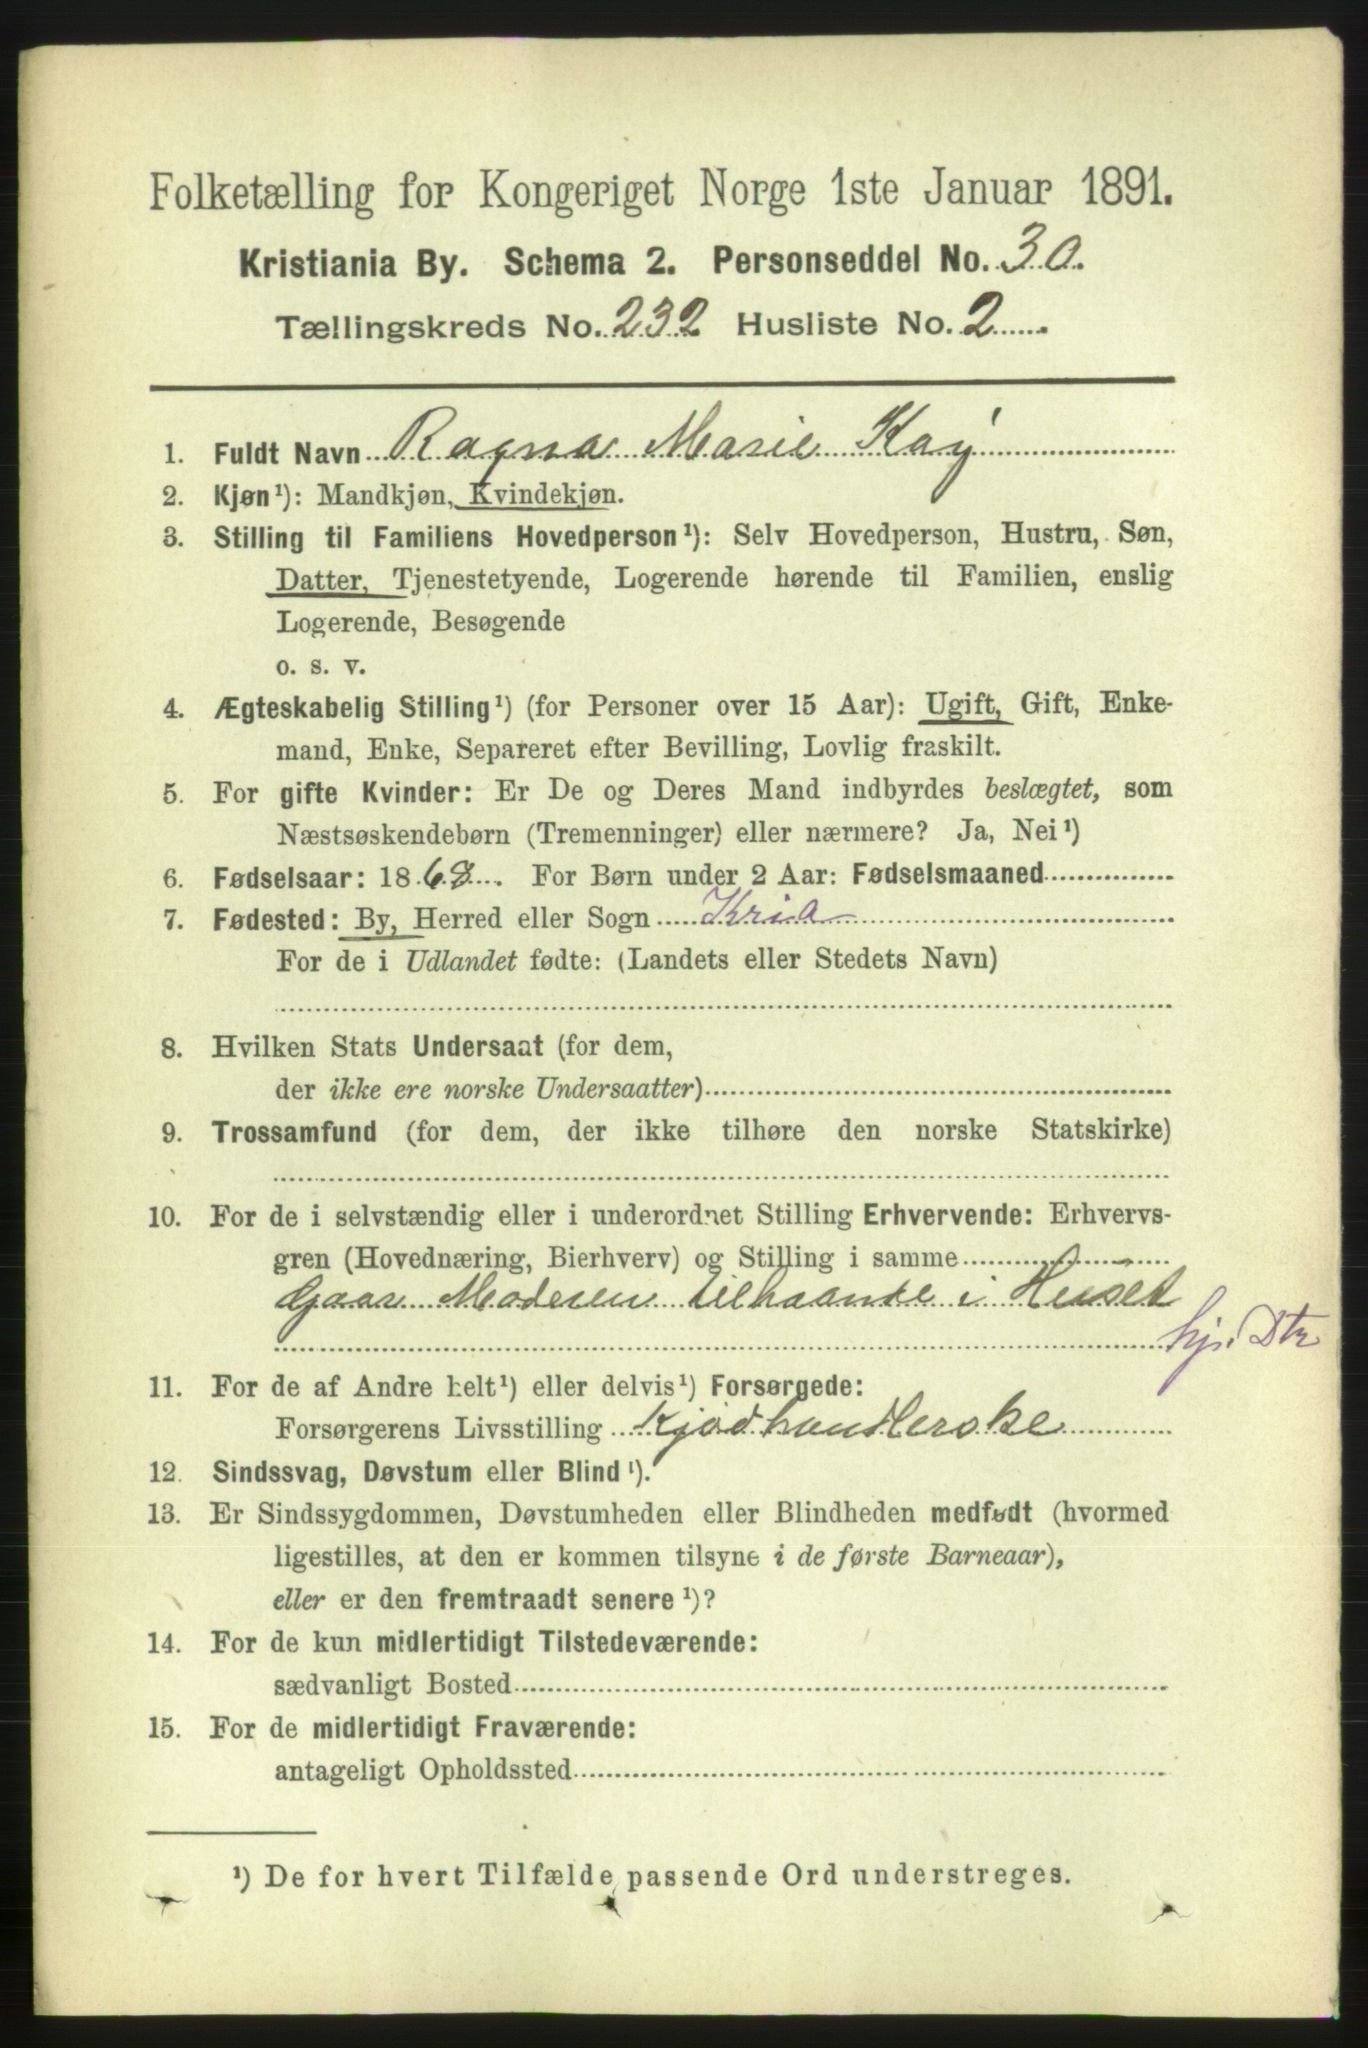 Folketælling for Kongeriget Norge 1ste Januar 1891.
Kristiania By. Schema 2. Personseddel No. 30.
Tællingskreds No. 232 Husliste No. 2
1. Fuldt Navn Ragna Marie Kay
2. Kjøn¹): Mandkjøn, Kvindekjøn.
3. Stilling til Familiens Hovedperson¹): Selv Hovedperson, Hustru, Søn,
Datter, Tjenestetyende, Logerende hørende til Familien, enslig
Logerende, Besøgende
o. s. v.
4. Ægteskabelig Stilling¹) (for Personer over 15 Aar): Ugift, Gift, Enke-
mand, Enke, Separeret efter Bevilling, Lovlig fraskilt.
5. For gifte Kvinder: Er De og Deres Mand indbyrdes beslægtet, som
Næstsøskendebørn (Tremenninger) eller nærmere? Ja, Nei¹)
6. Fødselsaar: 1868. For Børn under 2 Aar: Fødselsmaaned
7. Fødested: By, Herred eller Sogn Kria
For de i Udlandet fødte: (Landets eller Stedets Navn)
8. Hvilken Stats Undersaat (for dem,
der ikke ere norske Undersaatter)
9. Trossamfund (for dem, der ikke tilhøre den norske Statskirke)
10. For de i selvstændig eller i underordnet Stilling Erhvervende: Erhvervs-
gren (Hovednæring, Bierhverv) og Stilling i samme
Gaar Moderen tilhaande i Huset
hj. Dtr
11. For de af Andre helt¹) eller delvis¹) Forsørgede:
Forsørgerens Livsstilling Kjødhandlerske
12. Sindssvag, Døvstum eller Blind¹).
13. Er Sindssygdommen, Døvstumheden eller Blindheden medfødt (hvormed
ligestilles, at den er kommen tilsyne i de første Barneaar),
eller er den fremtraadt senere¹)?
14. For de kun midlertidigt Tilstedeværende:
sædvanligt Bosted
15. For de midlertidigt Fraværende:
antageligt Opholdssted
¹) De for hvert Tilfælde passende Ord understreges.